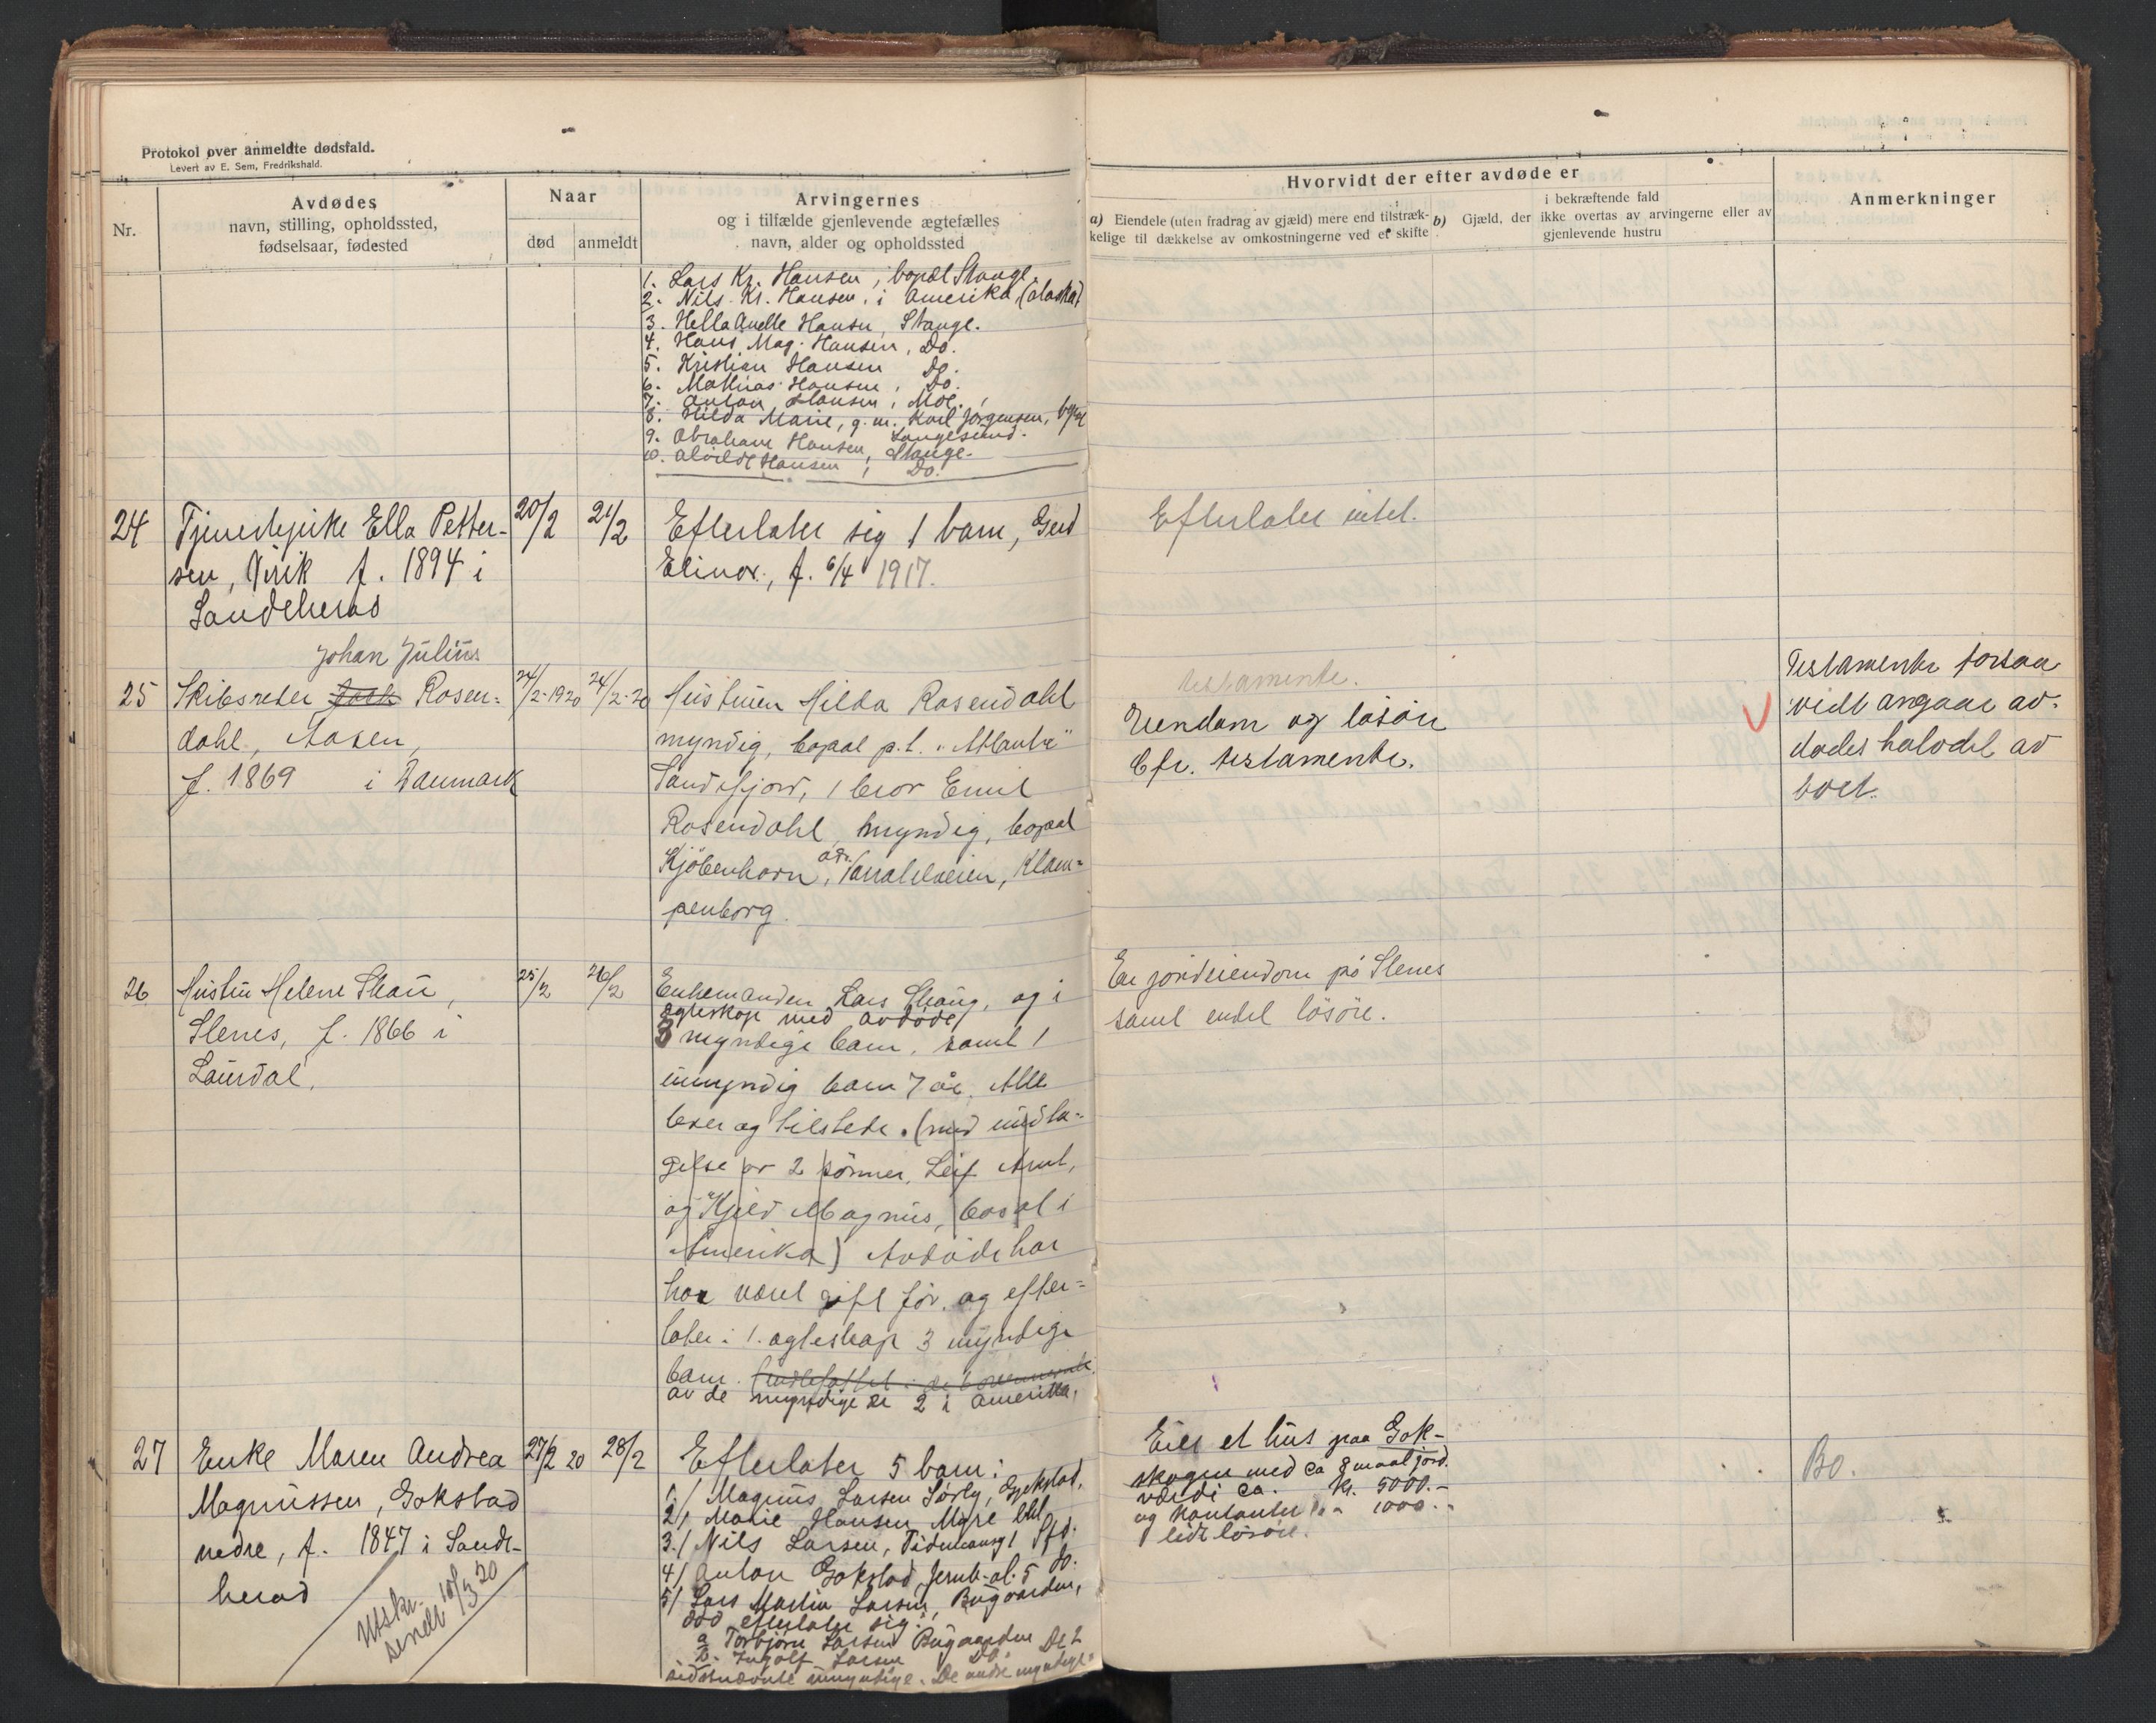 Protokol over anmeldte dødsfald.
Levert av E. Sem, Fredrikshald.
Nr.
Avdødes
navn, stilling, opholdssted,
fødselsaar, fødested
Naar
død
anmeldt
Arvingernes
og i tilfælde gjenlevende ægtefælles
navn, alder og opholdssted
Hvorvidt der efter avdøde er
a) Eiendele (uten fradrag av gjæld) mere end tilstræk-
kelige til dækkelse av omkostningerne ved et skifte
b) Gjæld, der i bekræftende fald
ikke overtas av arvingerne eller av
gjenlevende hustru
Anmerkninger
1. Lars Kr. Hansen, bopæl Stange.
2. Nils Kr. Hansen, i Amerika, (Alaska)
3. Hella Hansen, Stange.
4. Hans Mag. Hansen, Do.
5. Kristian Hansen Do.
6. Mathias Hansen, Do.
7. Anton Hansen,
8. Hilda Marie, g. m. Karl Jørgensen,
Langesund.
9. Abraham Hansen, Stange.
10. Alvilde Hansen, Do.
24
Tjenestepike Ella Petter-
sen, Virik f. 1894 i
Sandeherad
20/2
21/2
Efterlater sig 1 barn, Gerd
Elinor, f. 6/4 1917.
Efterlater intet.
25
Johan Julius
Skibsreder Rosen-
dahl, Aasen,
f. 1869 i Danmark
24/2-1920
24/2-20
Hustruen Hilda Rosendahl
myndig, bopæl p.t. "Atlantic"
Sandefjord, 1 bror Emil
Rosendahl, myndig, bopæl
Kjöbenhavn, adr. Klam-
penborg.
testamente.
Eiendom og løsøre
Cfr. testamente.
Testamente forsaa
vidt angaar av-
dødes halvdel av
boet.
26
Hustru Helene Skau,
Stenes, f. 1866 i
Laurdal.
25/2
26/2
Enkemanden Lars Skaug, og i
egteskap med avdøde
3 myndige barn, samt 1
umyndig barn 7 år. Alle
lever og tilstede. (med undta-
gelse av 2 sönner, Leif Arnt,
og Kjeld Magnus, bosat i
Amerika) Avdöde har
har været gift för, og efter-
later i 1. egteskap 3 myndige
barn.
av de myndige er 2 i Amerika.
En jordeiendom på Stenes
samt endel lösöre.
27
Enke Maren Andrea
Magnussen, Gokstad
nedre, f. 1847 i Sande-
herad
27/2 20
28/2
Utskr.
sendt 10/3 20
Efterlater 5 barn:
1/ Magnus Larsen Sørby, Gjekstad.
2/ Marie Hansen, Myre
3/ Nils Larsen, Sfd.
4/ Anton Gokstad, Jernb.-al. 5 do.
5/ Lars Martin Larsen, Bugaarden,
død efterlater sig:
a Torbjørn Larsen Bugaarden
b. Ingolf Larsen Do. De 2
sidstnævnte umyndige. De andre myndige.
Eier et hus paa Gok-
skogen med ca 8 maal jord.
værdi ca. Kr. 5000.-
og kontanter " 1000.-
lidt løsøre.
Bo.